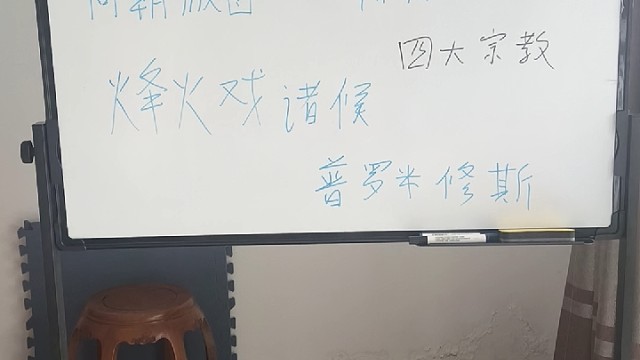 四大宗教
烽火戏诸候
普罗米修斯